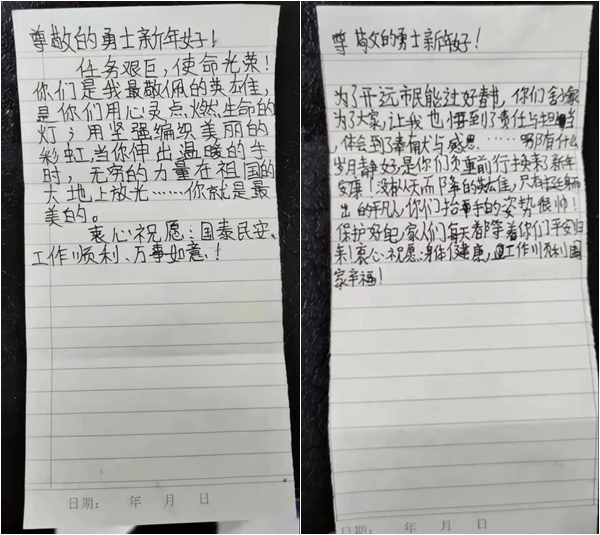 尊敬的勇士新年好！
任务艰巨，使命光荣！
你们是我最敬佩的英雄，
是你们用心灵点燃生命的
灯；用坚强编织美丽的
彩虹，当你伸出温暖的手
时，无穷的力量在祖国的
大地上放光……你就是最
美的。
衷心祝愿：国泰民安、
工作顺利、万事如意！
日期： 年 月 日
尊敬的勇士新年好！
为了开远市民能过好春节，你们舍小家
为了大家，让我也悟到了责任与担当，
体会到了奉献与感恩……哪有什么
岁月静好是你们负重前行换来了新年
安康！没有从天而降的英雄，只有挺身而
出的平凡人，你们抬手的姿势很帅！
保护好自己，家人们每天都等着你们平安归
来！衷心祝愿：身体健康，工作顺利国
家幸福！
日期： 年 月 日